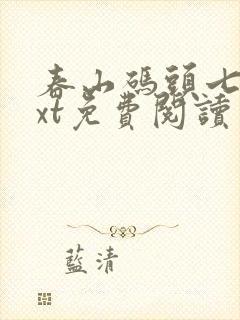 春山碼頭七
xt免費閱讀
藍清